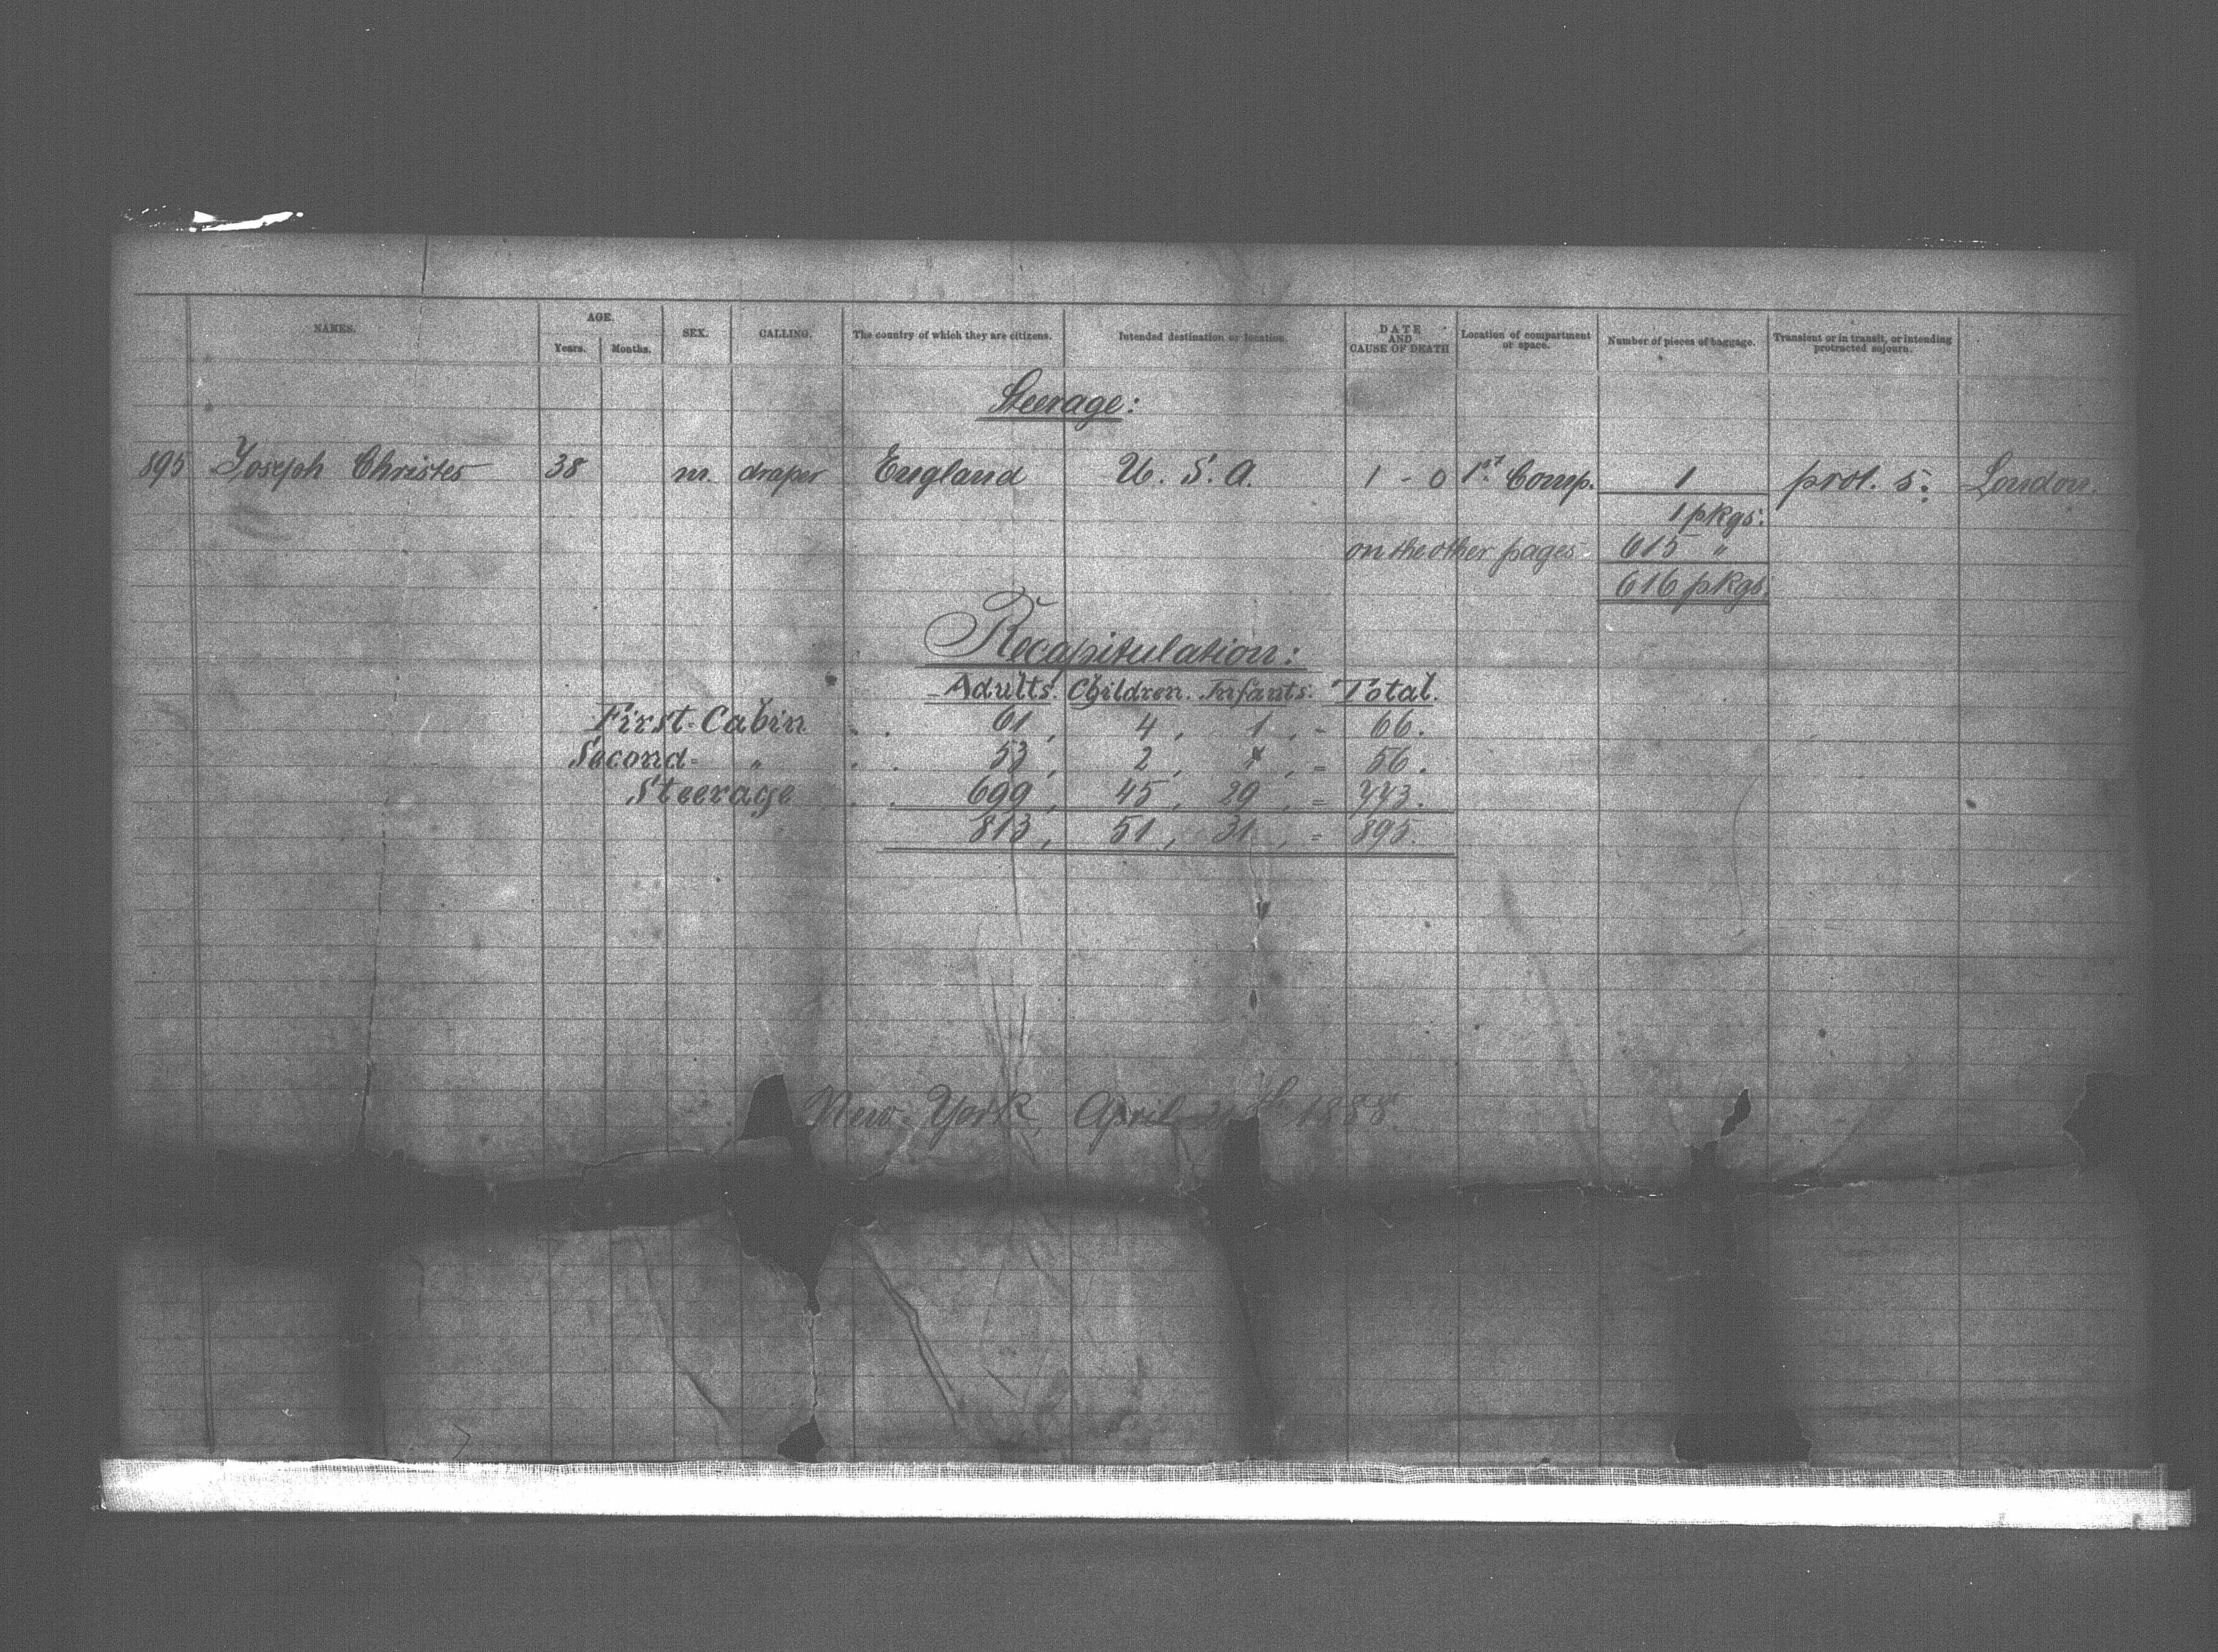 NAMES. AGE. Years. Months. SEX. CALLING. The country of which they are citizens. Intended destination or location. DATE AND CAUSE OF DEATH Location of compartment or space. Number of pieces of baggage. Transient or in transit, or intending protracted sojourn.
Steerage:
895 Joseph Christes 38 m. draper England U. S. A. 1 - 0 1st Comp. 1 prot. s: London.
1 pkgs.
on the other pages 615 "
616 pkgs.
Recapitulation:
Adults. Children. Infants. Total.
First-Cabin . . 61, 4, 1, - 66.
Second- " . . 53, 2, 1, = 56.
Steerage . . 699, 45, 29, = 773.
813, 51, 31, = 895.
New-York, April 1888.